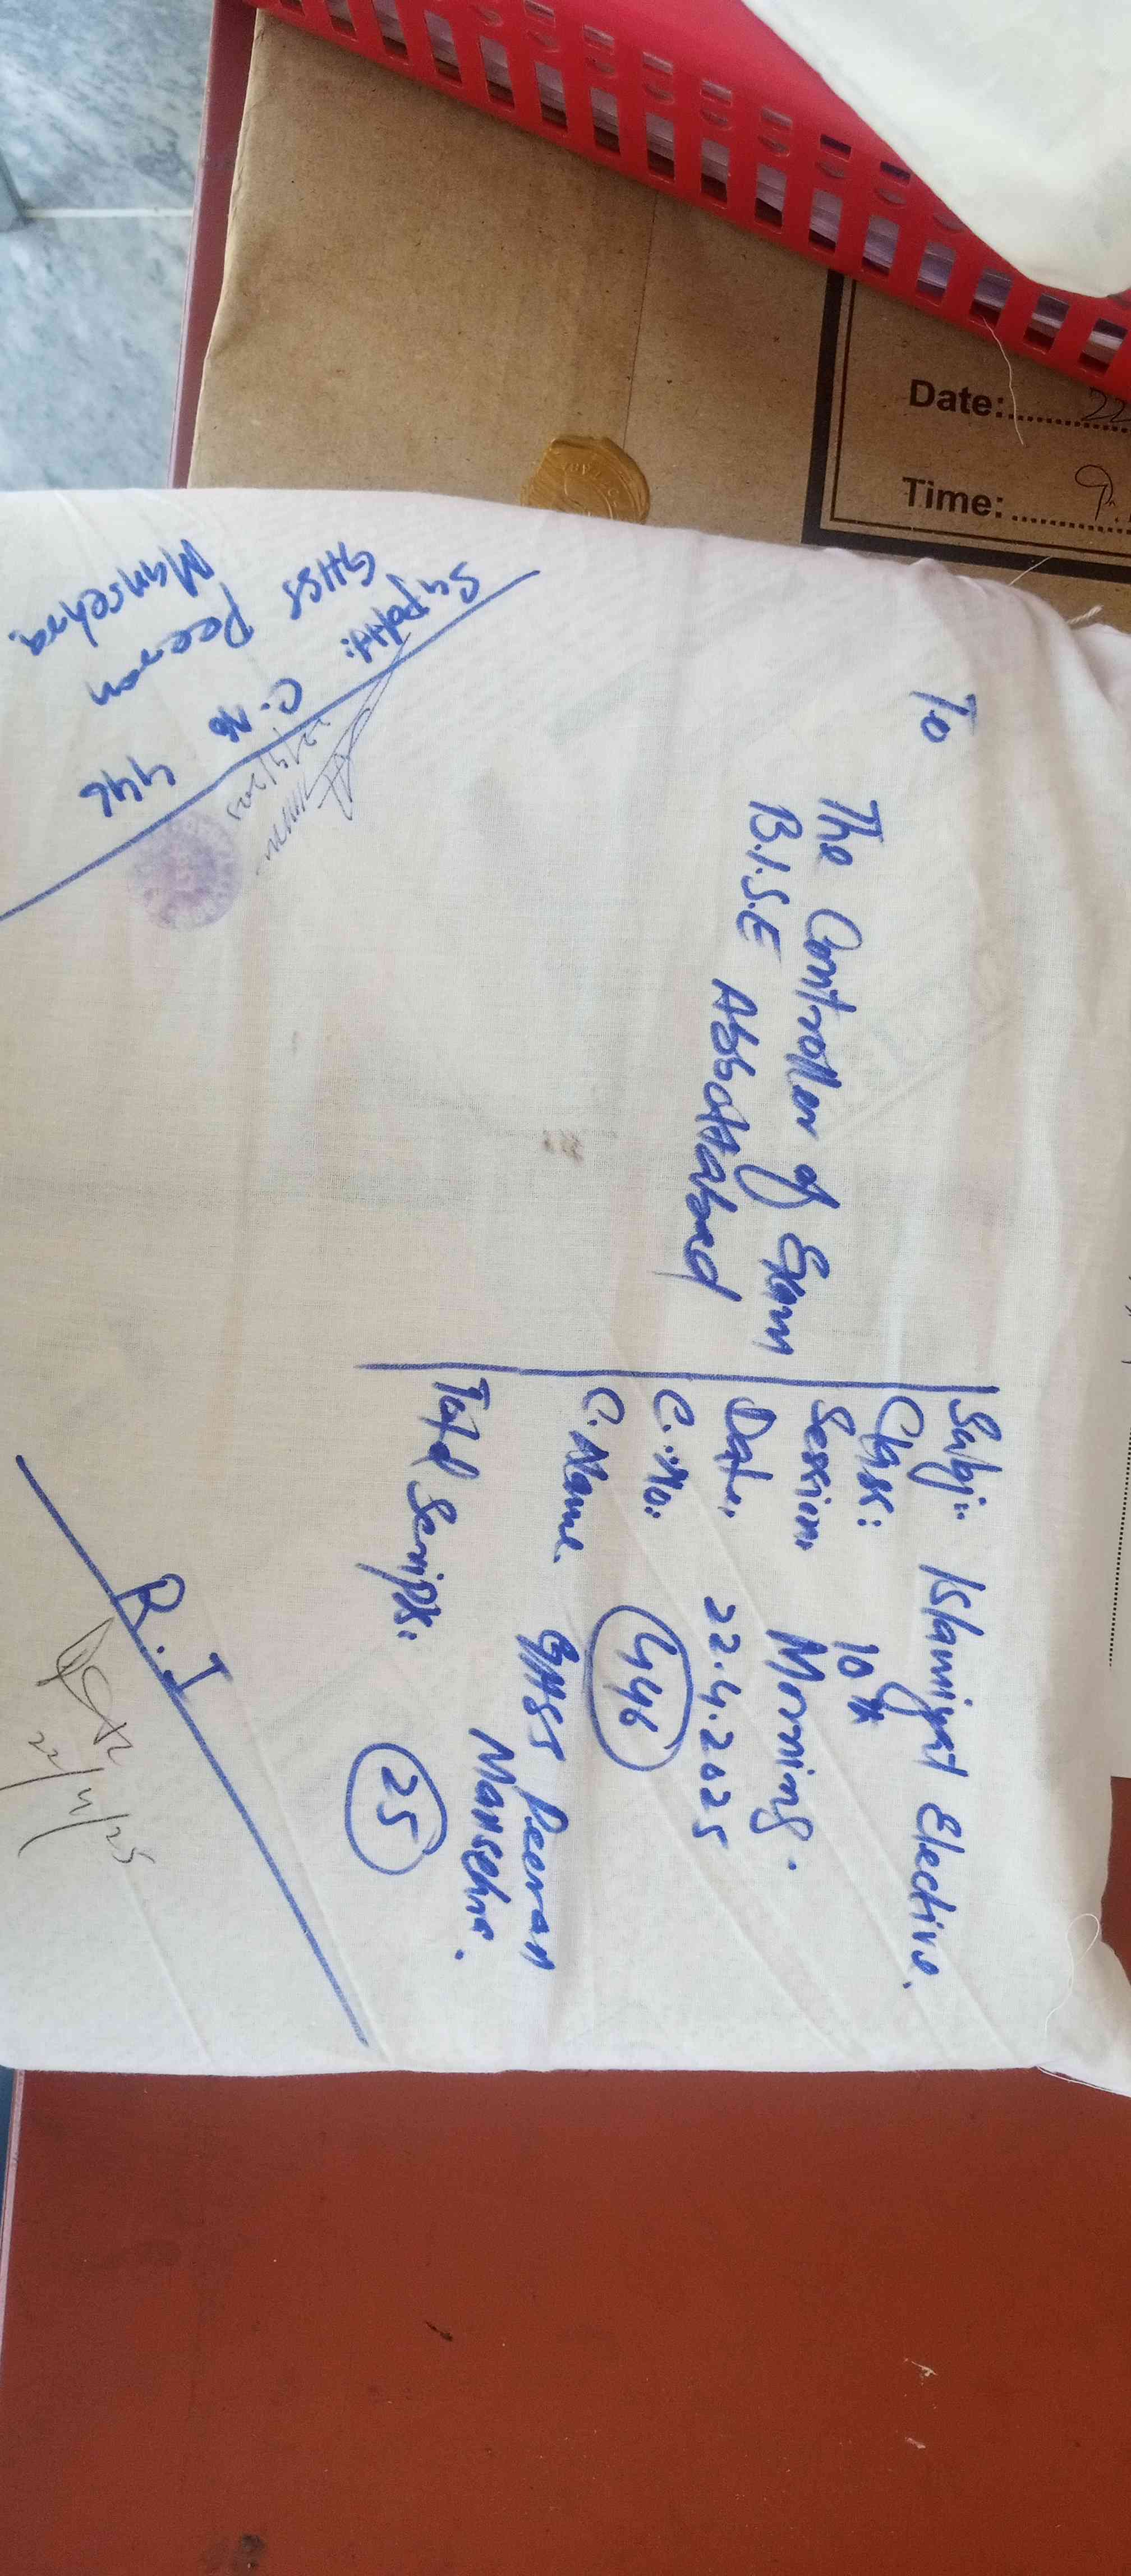 Date:..........22
Time:..........9.
To
The Controller of Exam
B.I.S.E Abbottabad
Subj:- Islamiyat Elective.
Class: 10th
Session Morning.
Date. 22.4.2025
C.No: 446
C.Name. GHSS Peeran
Mansehra.
Total Scripts: 25
Supdtt:
GHSS Peeran
Mansehra.
C.No 446
22/4/2025
R.I
22/4/25